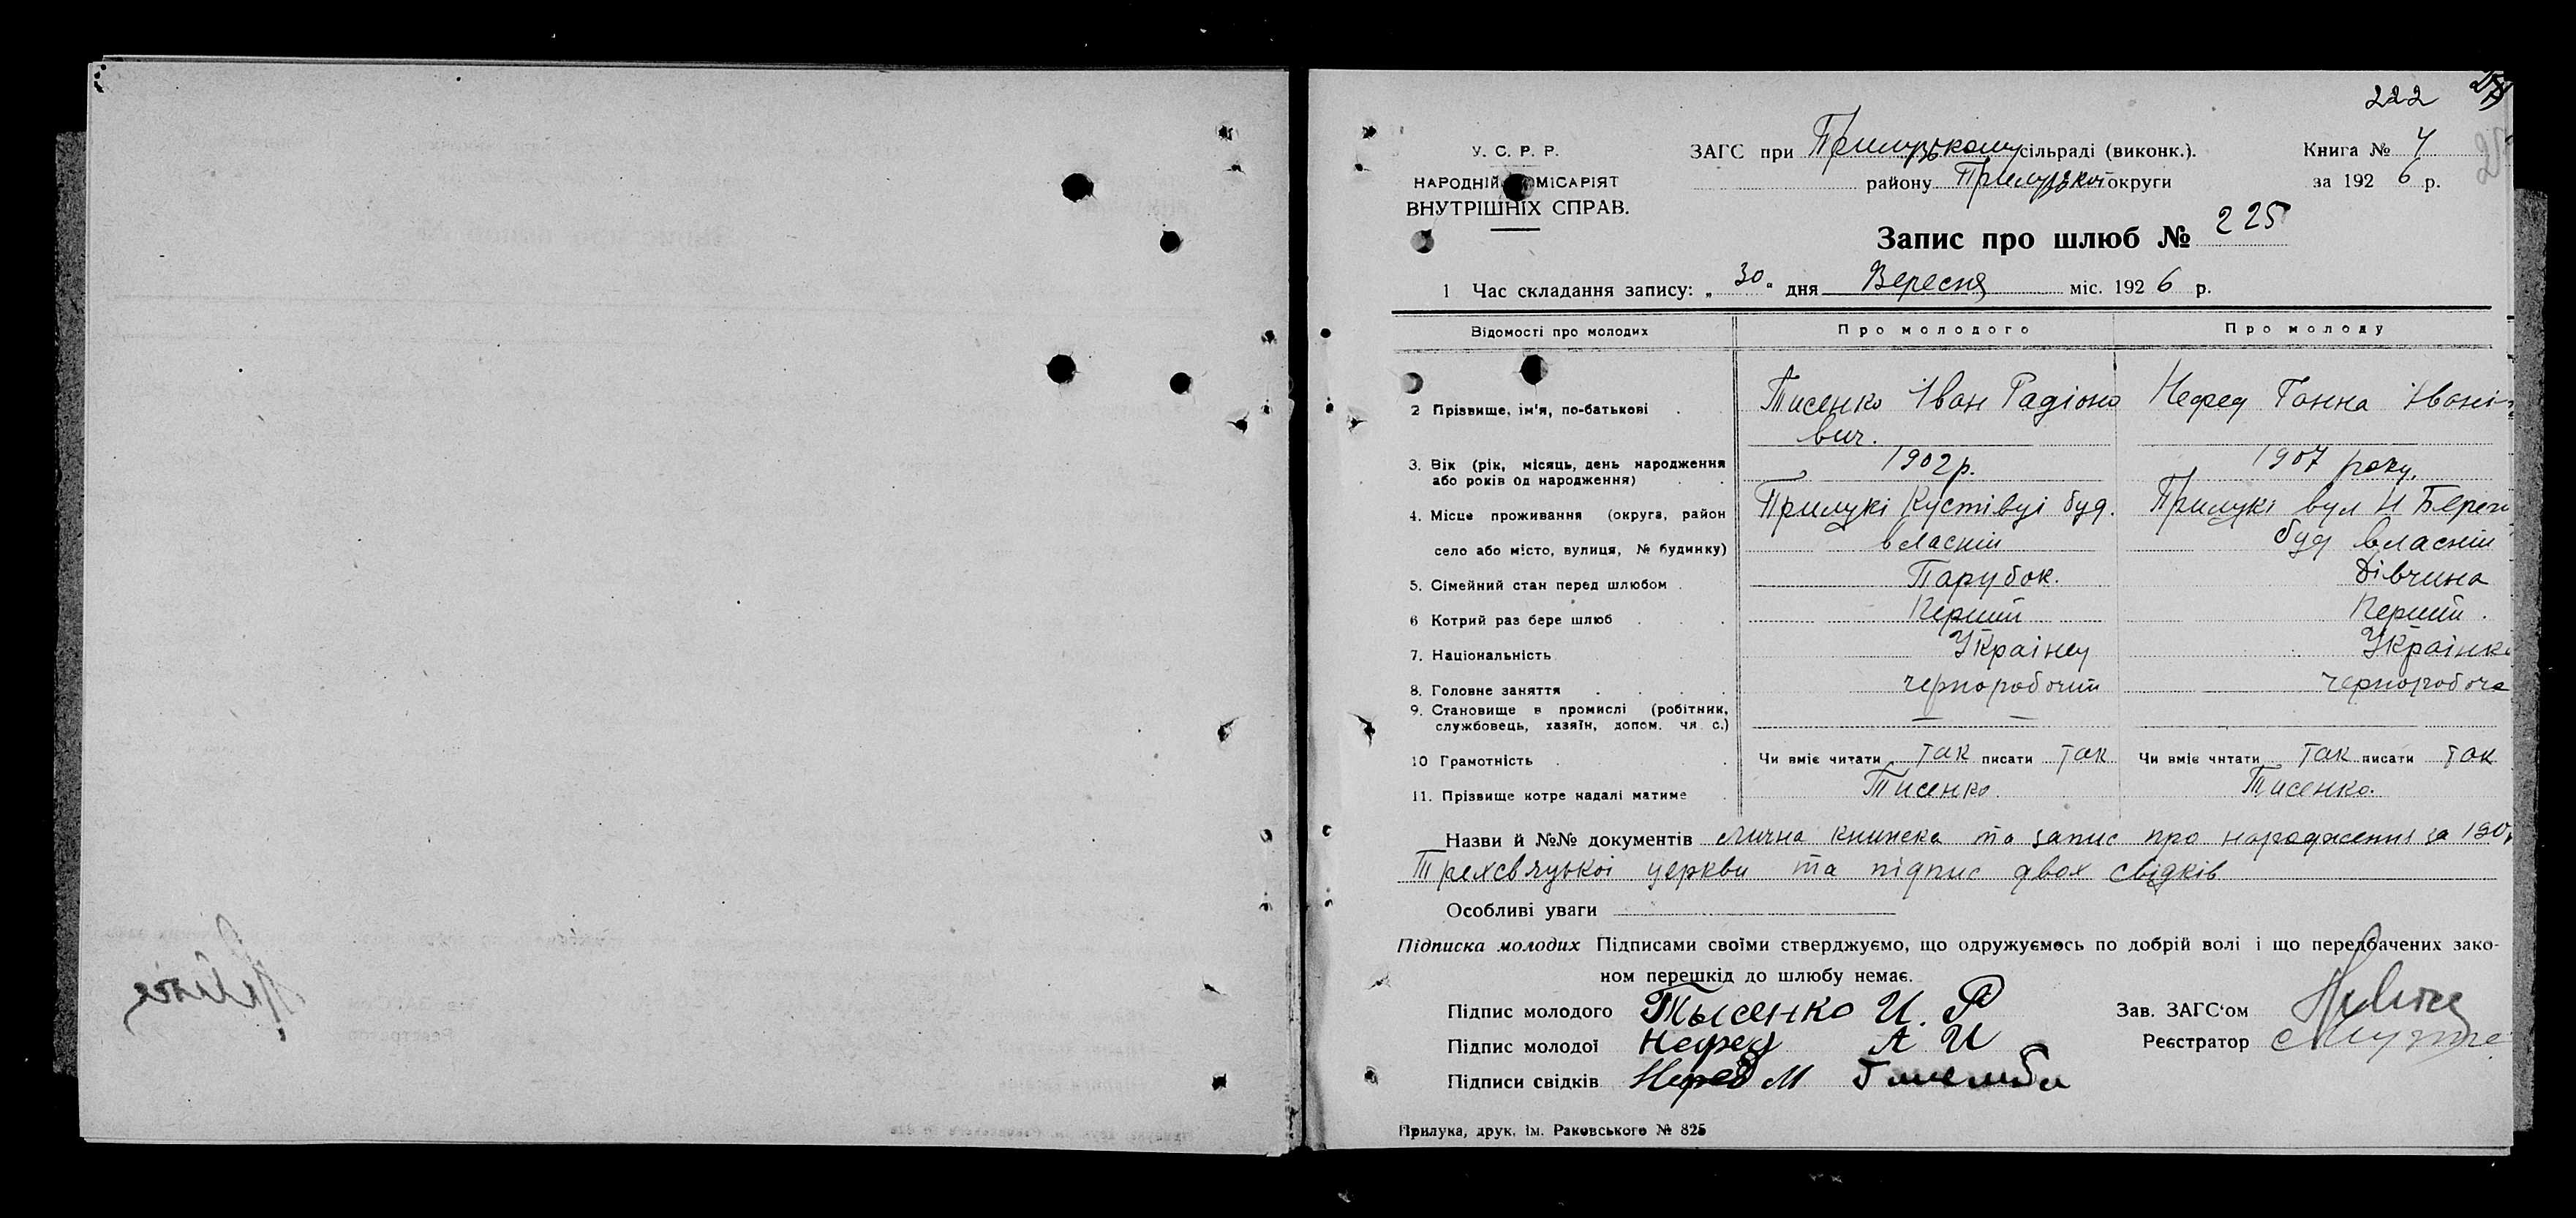 222
У. С. Р. Р.
НАРОДНІЙ КОМІСАРІЯТ
ВНУТРІШНІХ СПРАВ.
ЗАГС при Прилуцькому сільраді (виконк.).
району Прилуцької округи
Книга № 4
за 1926 р.
Запис про шлюб № 225
1 Час складання запису: „30“ дня Вересня міс. 1926 р.
Відомості про молодих Про молодого Про молоду
2 Прізвище, ім'я, по-батькові Тисенко Іван Радіоно Нефед Ганна Івані
вич.
3. Вік (рік, місяць, день народження 1902 р. 1907 року.
або років од народження)
4. Місце проживання (округа, район Прилукі Кустівці буд. Прилукі вул Н Берег
село або місто, вулиця, № будинку) власний буд власний
5. Сімейний стан перед шлюбом Парубок. Дівчина
6 Котрий раз бере шлюб Перший Перший.
7. Національність Українец Українка
8. Головне заняття чернорабочий чернорабоча
9. Становище в промислі (робітник, — —
службовець, хазяїн, допом. чл. с.)
10 Грамотність Чи вміє читати так писати так Чи вміє читати так писати так
11. Прізвище котре надалі матиме Тисенко. Тисенко.
Назви й №№ документів Лична книжека та запис про народження за 190
Трехсвяцькоі церкви та підпис двох свідків
Особливі уваги
Підписка молодих Підписами своїми стверджуємо, що одружуємось по добрій волі і що передбачених зако-
ном перешкід до шлюбу немає.
Підпис молодого Тысенко И. Р Зав. ЗАГС'ом
Підпис молодої Нефед А И Реєстратор
Підписи свідків Нефед М
Прилука, друк. ім. Раковського № 825